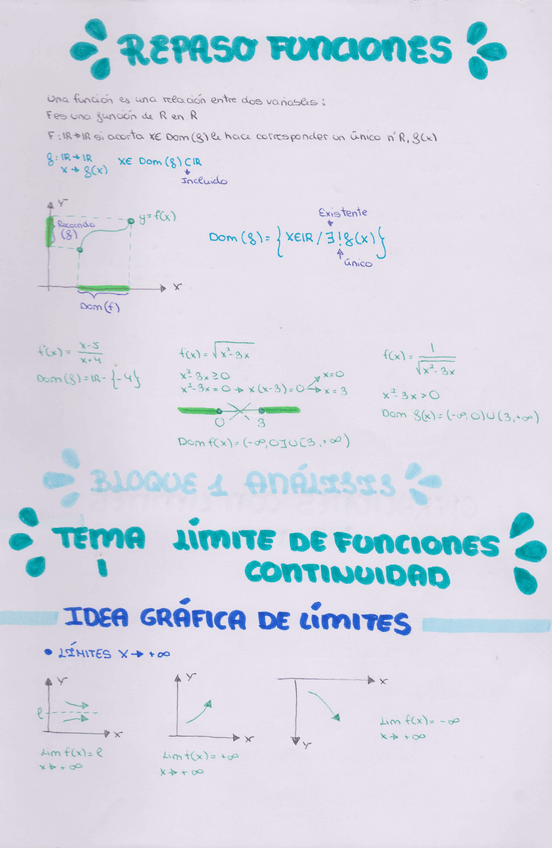 REPASO FUNCIONES
Una función es una relación entre dos variables:
F es una función de R en R
F: IR→IR si a cada x∈ Dom(f) le hace corresponder un único nº R, f(x)
f: IR→IR x∈ Dom(f)⊂IR
x→f(x)
Incluido
Y
Recorrido
(f)
y=f(x)
X
Dom(f)
Existente
Dom(f)={x∈IR/∃!f(x)}
único
f(x)= x-5/x+4
Dom(f)=IR-{-4}
f(x)=√x²-3x
x²-3x≥0
x²-3x=0→x(x-3)=0 x=0 x=3
0 3
Dom f(x)=(-∞,0]∪[3,+∞)
f(x)= 1/√x²-3x
x²-3x>0
Dom f(x)=(-∞,0)∪(3,+∞)
BLOQUE 1 ANÁLISIS
TEMA 1 LÍMITE DE FUNCIONES
CONTINUIDAD
IDEA GRÁFICA DE LÍMITES
• LÍMITES X→+∞
Y
ℓ
X
Lim f(x)=ℓ
x→+∞
Y
X
Lim f(x)=+∞
x→+∞
X
Y
Lim f(x)=-∞
x→+∞